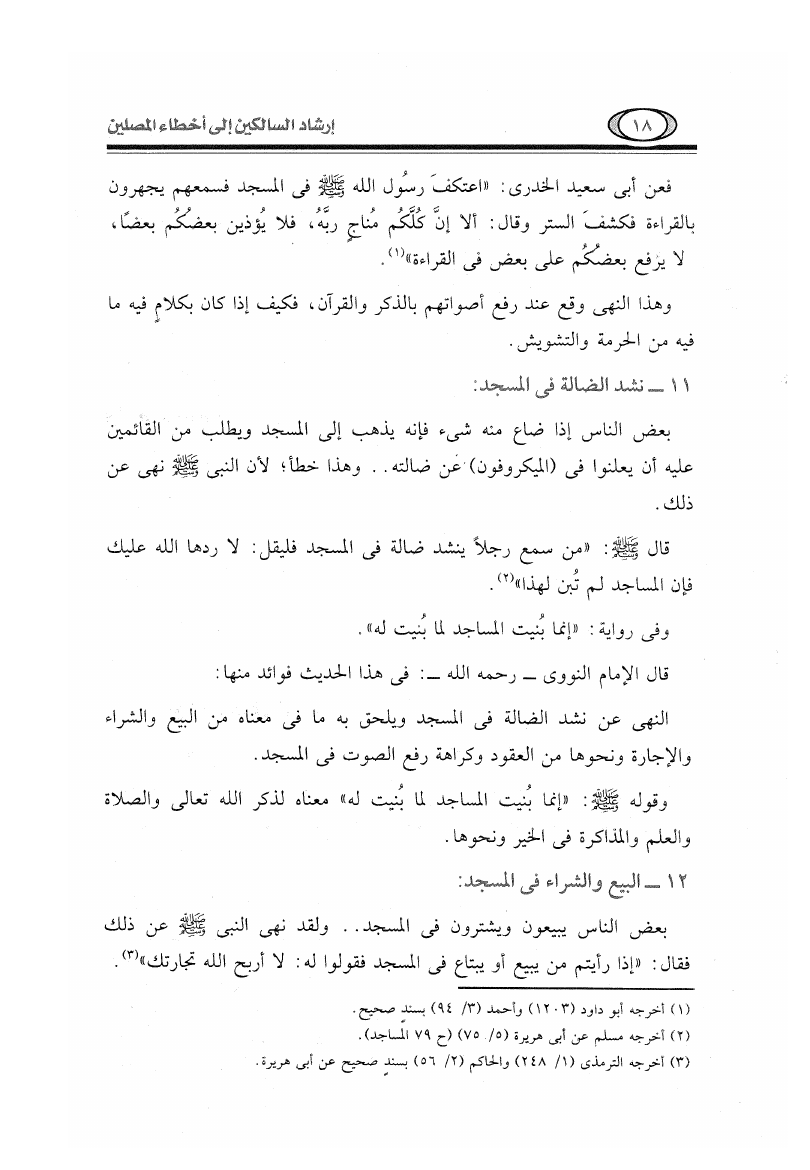 ١٨
إرشاد السالكين إلى أخطاء المصلين
فعن أبى سعيد الخدرى: «اعتكفَ رسُول الله ﷺ فى المسجد فسمعهم يجهرون
بالقراءة فكشفَ الستر وقال: ألا إنَّ كُلَّكُم مُناجٍ ربَّهُ، فلا يُؤذين بعضُكُم بعضًا،
لا يرْفع بعضُكُم على بعض فى القراءة»(١).
وهذا النهى وقع عند رفع أصواتهم بالذكر والقرآن، فكيف إذا كان بكلامٍ فيه ما
فيه من الحرمة والتشويش.
١١ ــ نشد الضالة فى المسجد:
بعض الناس إذا ضاع منه شىء فإنه يذهب إلى المسجد ويطلب من القائمين
عليه أن يعلنوا فى (الميكروفون) عن ضالته.. وهذا خطأ؛ لأن النبى ﷺ نهى عن
ذلك.
قال ﷺ: «من سمع رجلاً ينشد ضالة فى المسجد فليقل: لا ردها الله عليك
فإن المساجد لم تُبن لهذا»(٢).
وفى رواية: «إنما بُنيت المساجد لما بُنيت له».
قال الإمام النووى ــ رحمه الله ــ: فى هذا الحديث فوائد منها:
النهى عن نشد الضالة فى المسجد ويلحق به ما فى معناه من البيع والشراء
والإجارة ونحوها من العقود وكراهة رفع الصوت فى المسجد.
وقوله ﷺ: «إنما بُنيت المساجد لما بُنيت له» معناه لذكر الله تعالى والصلاة
والعلم والمذاكرة فى الخير ونحوها.
١٢ ــ البيع والشراء فى المسجد:
بعض الناس يبيعون ويشترون فى المسجد.. ولقد نهى النبى ﷺ عن ذلك
فقال: «إذا رأيتم من يبيع أو يبتاع فى المسجد فقولوا له: لا أربح الله تجارتك»(٣).
(١) أخرجه أبو داود (١٢٠٣) وأحمد (٣/ ٩٤) بسندٍ صحيح.
(٢) أخرجه مسلم عن أبى هريرة (٥/ ٧٥) (ح ٧٩ المساجد).
(٣) أخرجه الترمذى (١/ ٢٤٨) والحاكم (٢/ ٥٦) بسندٍ صحيح عن أبى هريرة.